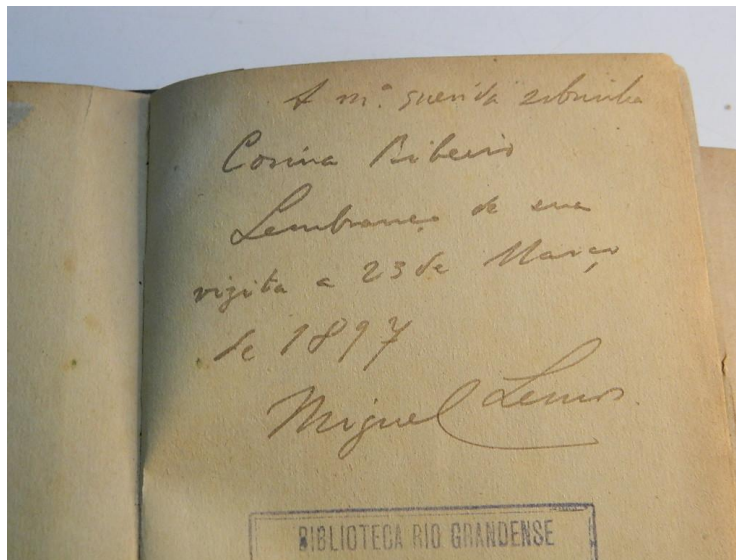 A m.ª querida sobrinha
Corina Ribeiro
Lembrança de sua
vizita a 23 de Março
de 1897
Miguel Lemos
BIBLIOTECA RIO GRANDENSE